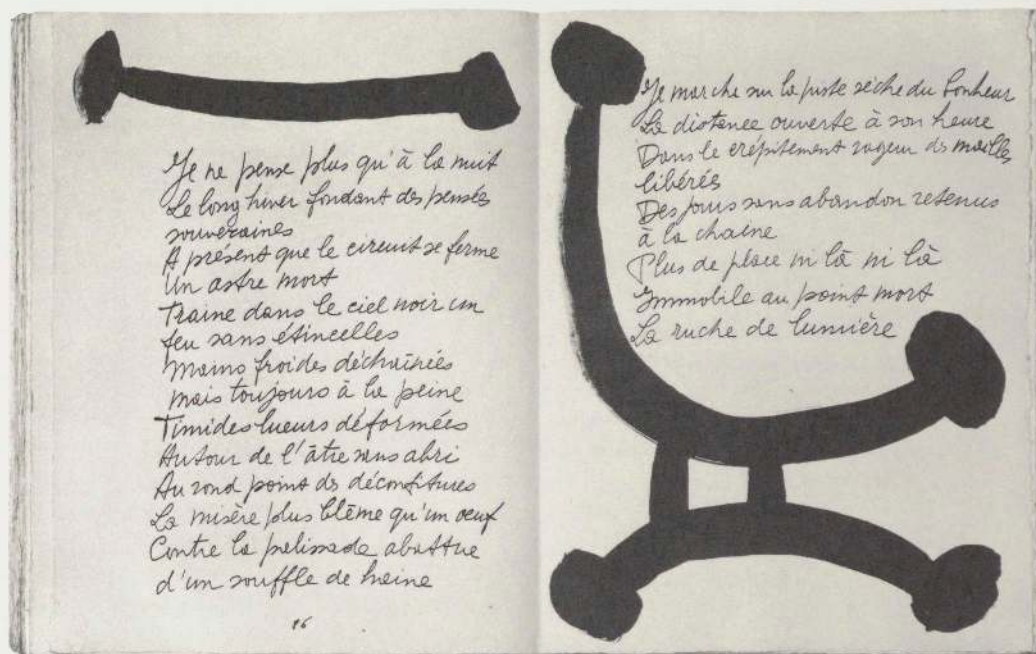 Je ne pense plus qu'à la nuit
Le long hiver fondant des pensées
souveraines
A présent que le circuit se ferme
Un astre mort
Traine dans le ciel noir un
feu sans étincelles
Mains froides déchaînées
mais toujours à la peine
Timides lueurs déformées
Autour de l'âtre sans abri
Au rond point des déconfitures
La misère plus blême qu'un oeuf
Contre la palissade abattue
d'un souffle de haine
96
Je marche sur la piste sèche du bonheur
La distance ouverte à son heure
Dans le crépitement rageur des mailles
libérés
Des jours sans abandon retenus
à la chaine
Plus de place ni là ni là
Immobile au point mort
La ruche de lumière